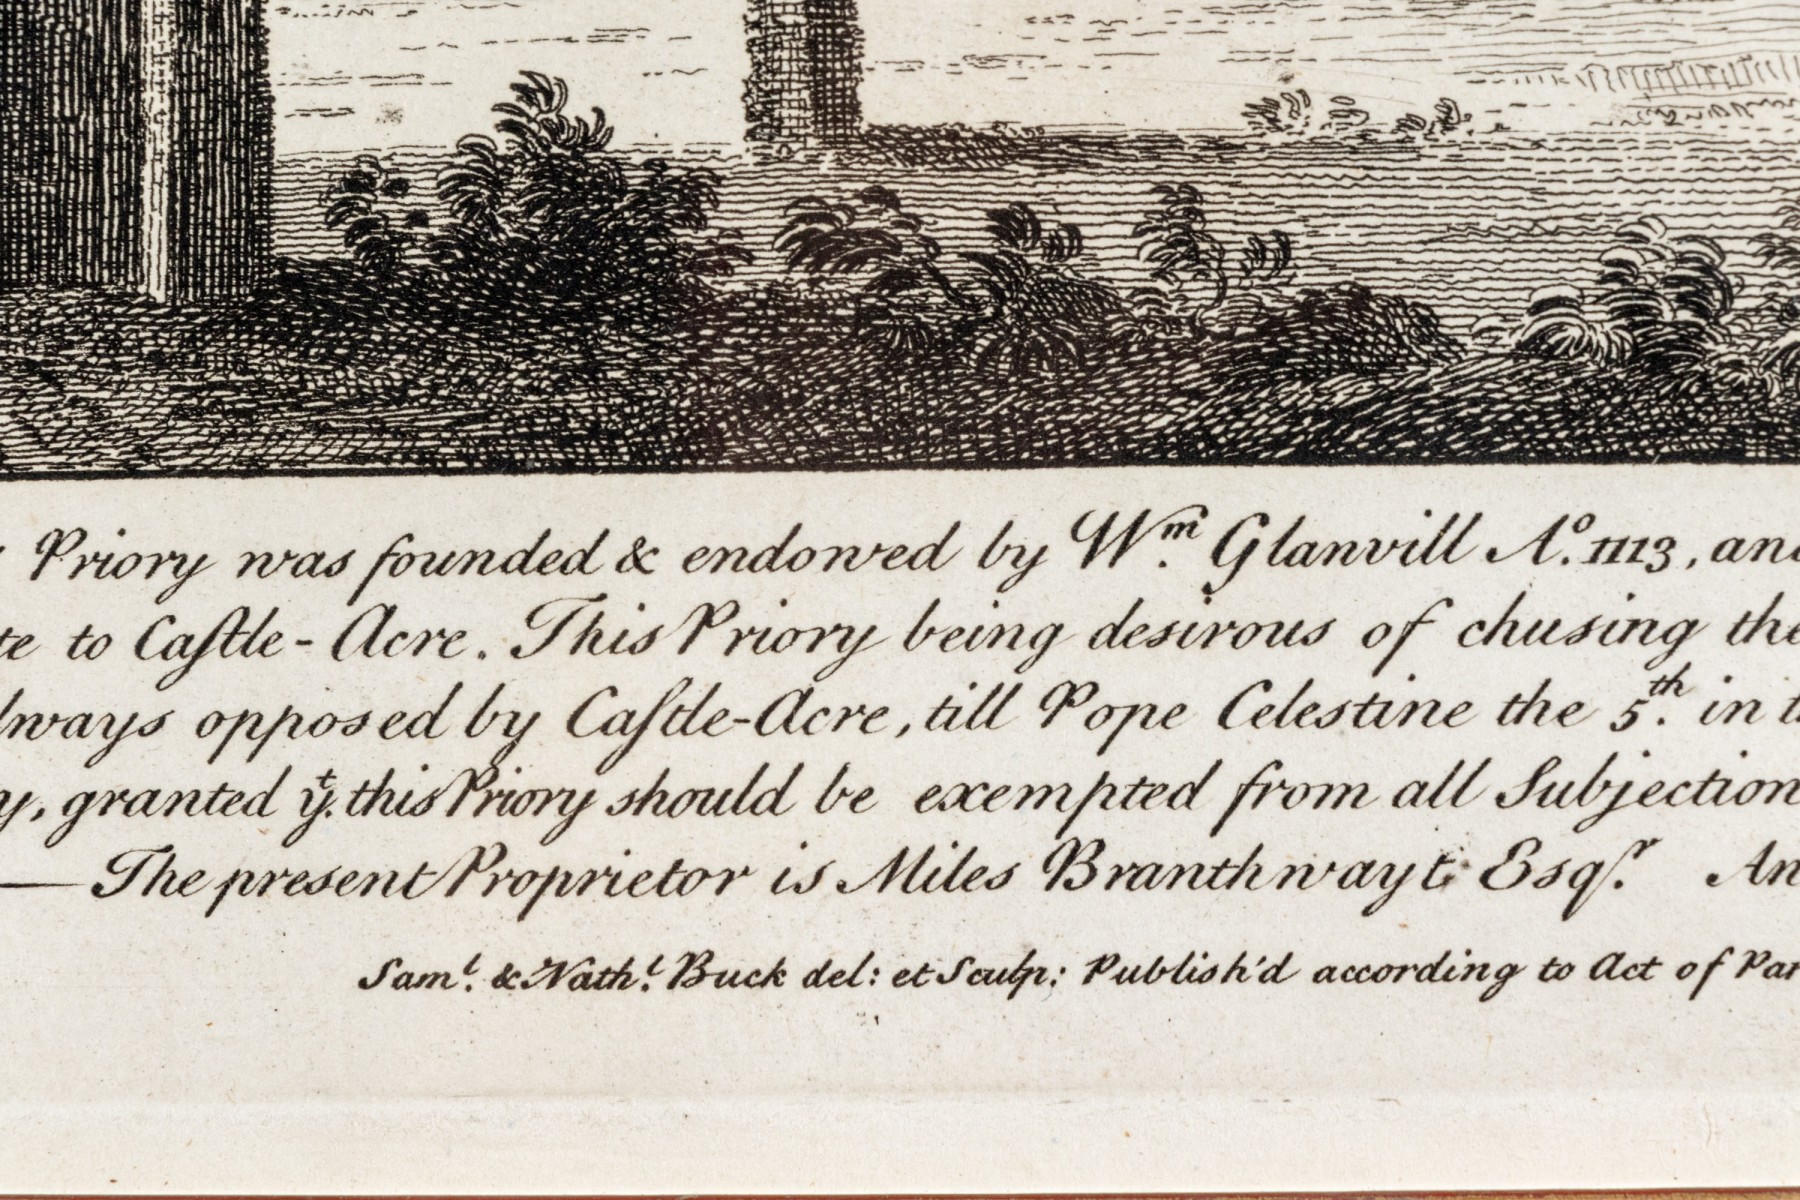 Priory was founded & endowed by Wm. Glanvill Ao. 1113, and
te to Caſtle-Acre. This Priory being desirous of chusing the
lways opposed by Caſtle-Acre, till Pope Celestine the 5th. in
y, granted yt. this Priory should be exempted from all Subjection
— The present Proprietor is Miles Branthwayt Esqr. An
Saml. & Nathl. Buck del: et Sculp: Publish'd according to Act of Par